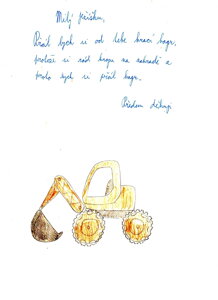 Milý Ježíšku,
Přál bych si od tebe hrací bagr,
protože si rád hraju na zahradě a
proto bych si přál bagr.
Předem děkuji